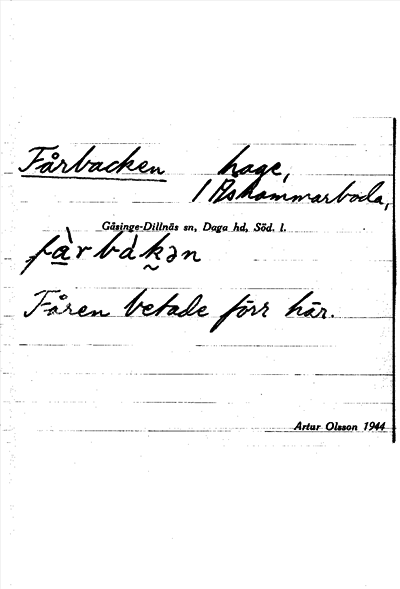 Fårbacken hage,
1 Åshammarboda,
Gåsinge-Dillnäs sn, Daga hd, Söd. l.
fàrbákən
Fåren betade förr här.
Artur Olsson 1944